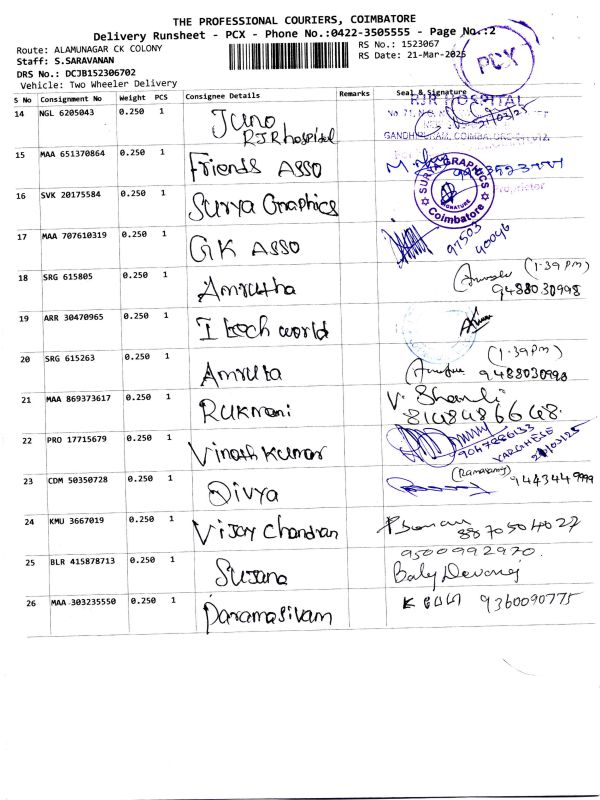 THE PROFESSIONAL COURIERS, COIMBATORE
Delivery Runsheet - PCX - Phone No.:0422-3505555 - Page No.:2
Route: ALAMUNAGAR CK COLONY
RS No.: 1523067
Staff: S.SARAVANAN
RS Date: 21-Mar-2025
DRS No.: DCJB152306702
Vehicle: Two Wheeler Delivery
PCX
S No Consignment No Weight PCS Consignee Details Remarks Seal & Signature
14 NGL 6205043 0.250 1 Juno RJR hospital
RJR HOSPITAL
21/03/25
15 MAA 651370864 0.250 1 Friends Asso
16 SVK 20175584 0.250 1 Surya Graphics
SURYA GRAPHICS
SIGNATURE
Coimbatore
Proprietor
17 MAA 707610319 0.250 1 GK Asso 97503 40046
18 SRG 615805 0.250 1 Amrutha (1-39 PM) 9488030998
19 ARR 30470965 0.250 1 I tech world
20 SRG 615263 0.250 1 Amruta (1-39PM) 9488030998
21 MAA 869373617 0.250 1 Rukmani V. 8148486648.
22 PRO 17715679 0.250 1 Vinoth Kumar 9047886133 VARGHESE 21/03/25
23 CDM 50350728 0.250 1 Divya (Ramasamy) 944344 9999
24 KMU 3667019 0.250 1 Vijay Chandran 8870504027
25 BLR 415878713 0.250 1 Susana 9500992970. Baby Devaraj
26 MAA 303235550 0.250 1 Paramasivam 9360090775